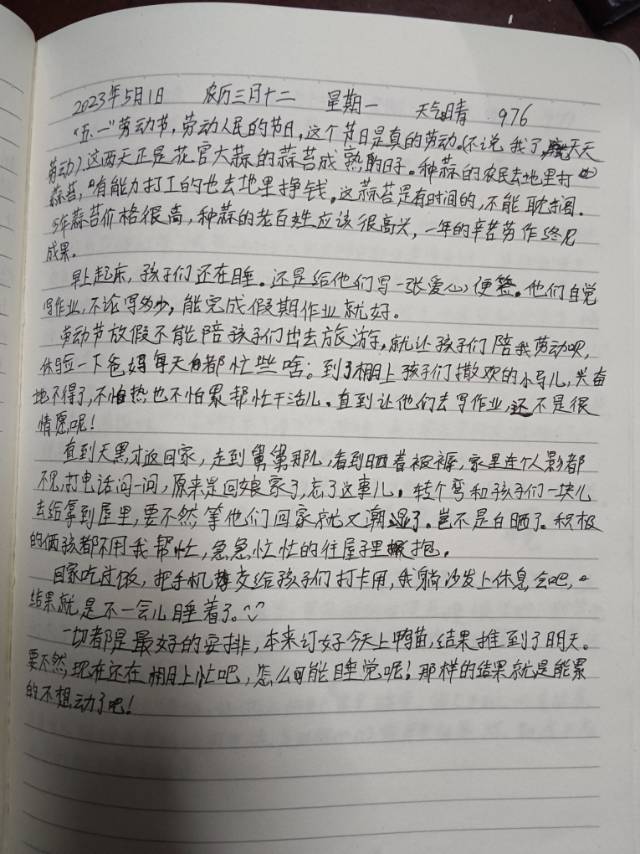 2023年5月1日 农历三月十二 星期一 天气晴 976
"五.一"劳动节,劳动人民的节日,这个节日是真的劳动。(不说我了,天天
劳动)这两天正是花官大蒜的蒜苔成熟的日子。种蒜的农民去地里打
蒜苔,有能力打工的也去地里挣钱。这蒜苔是有时间的,不能耽搁。
今年蒜苔价格很高,种蒜的老百姓应该很高兴,一年的辛苦劳作终见
成果。
早上起床,孩子们还在睡。还是给他们写一张爱心便签。他们自觉
写作业,不论写多少,能完成假期作业就好。
劳动节放假不能陪孩子们出去旅游,就让孩子们陪我劳动呗,
体验一下爸妈每天都忙些啥;到了棚上孩子们撒欢的小鸟儿,兴奋
地不得了,不怕热也不怕累帮忙干活儿。直到让他们去写作业,还不是很
情愿呢!
直到天黑才返回家,走到舅舅那儿,看到晒着被褥,家里连个人影都
不见,打电话问一问,原来是回娘家了,忘了这事儿。转个弯和孩子们一块儿
去给拿到屋里,要不然,等他们回家就又潮湿了。岂不是白晒了。积极
的俩孩都不用我帮忙,急急忙忙的往屋子里抱。
回家吃过饭,把手机交给孩子们打卡用,我躺沙发上休息会吧,
结果就是不一会儿睡着了。
一切都是最好的安排,本来订好今天上鸭苗,结果推到了明天。
要不然,现在还在棚上忙吧,怎么可能睡觉呢!那样的结果就是能累
的不想动了吧!